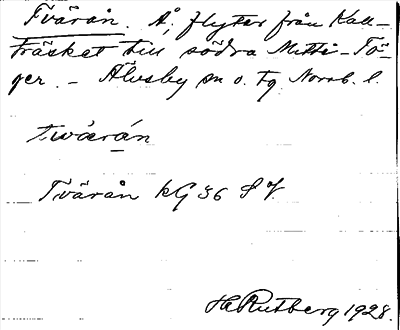 Tvärån. Å, flyter från Kall-
träsket till södra Mitti-Tö-
ger. – Älvsby sn o. tg. Norrb. l.
twärán
Tvärån kG 36 S V.
H. Rutberg 1928.